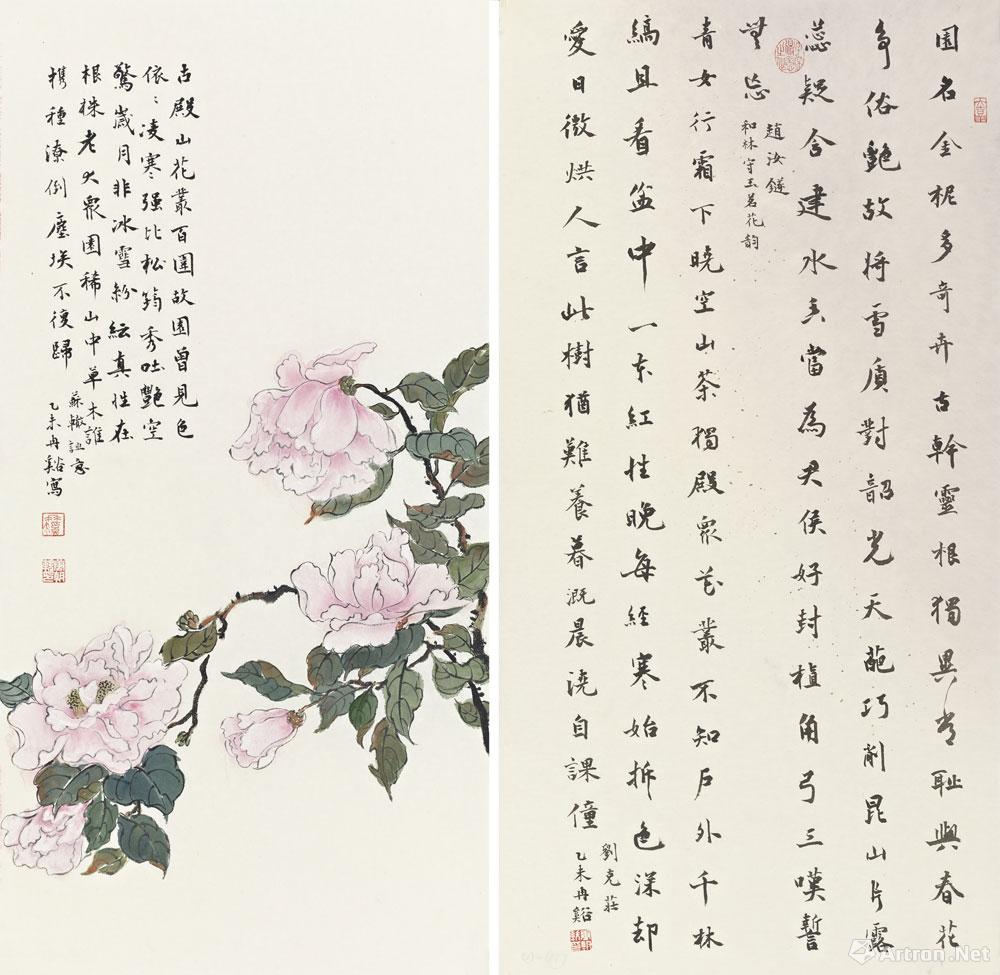 園名金柅多奇卉古幹靈根獨異常恥與春花
爭俗艷故將雪質對韶光天葩巧削昆山片露
蕊疑含建水香當為君侯好封植角弓三嘆誓
無忘
趙汝鐩
和林守玉茗花韵
青女行霜下曉空山茶獨殿眾花叢不知戶外千林
縞且看盆中一本紅性晚每經寒始拆色深却
愛日微烘人言此樹猶難養暮溉晨澆自課僮
劉克莊
乙未冉谿
古殿山花叢百圍故園曾見色
依〻凌寒强比松筠秀吐艷空
驚歲月非冰雪紛紜真性在
根株老大眾園稀山中草木誰
携種潦倒塵埃不復歸
蘇轍詩意
乙未冉谿寫
Artron.Net